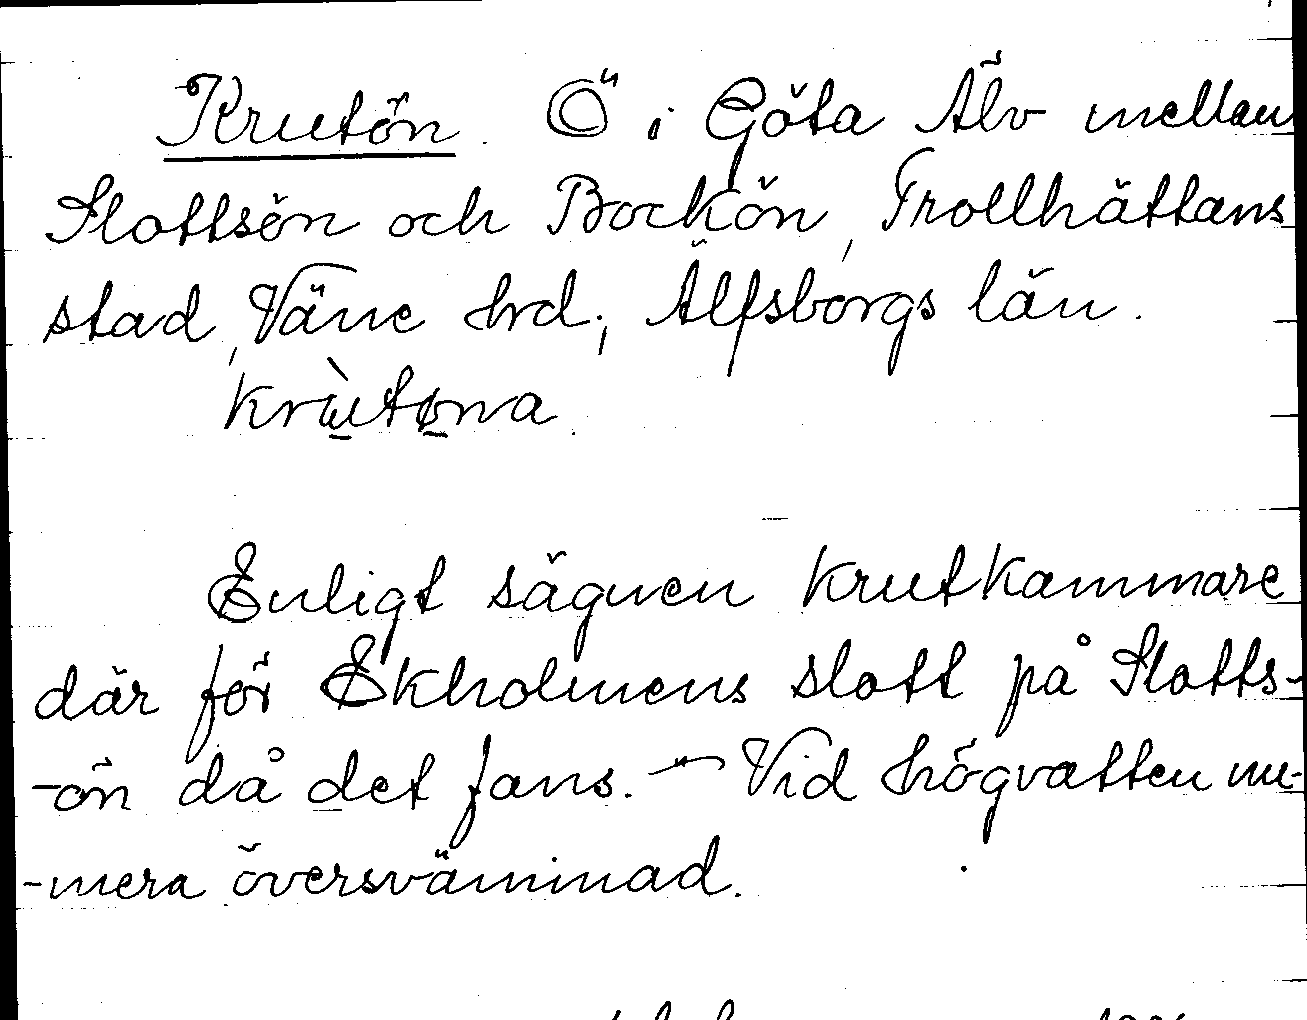 Krutön. Ö i Göta Älv mellan
Slottsön och Bockön, Trollhättans
stad, Väne hrd; Älfsborgs län.
krùtøna.
Enligt sägnen krutkammare
där för Ekholmens slott på Slotts-
-ön då det fans. — Vid högvatten nu-
-mera översvämmad.